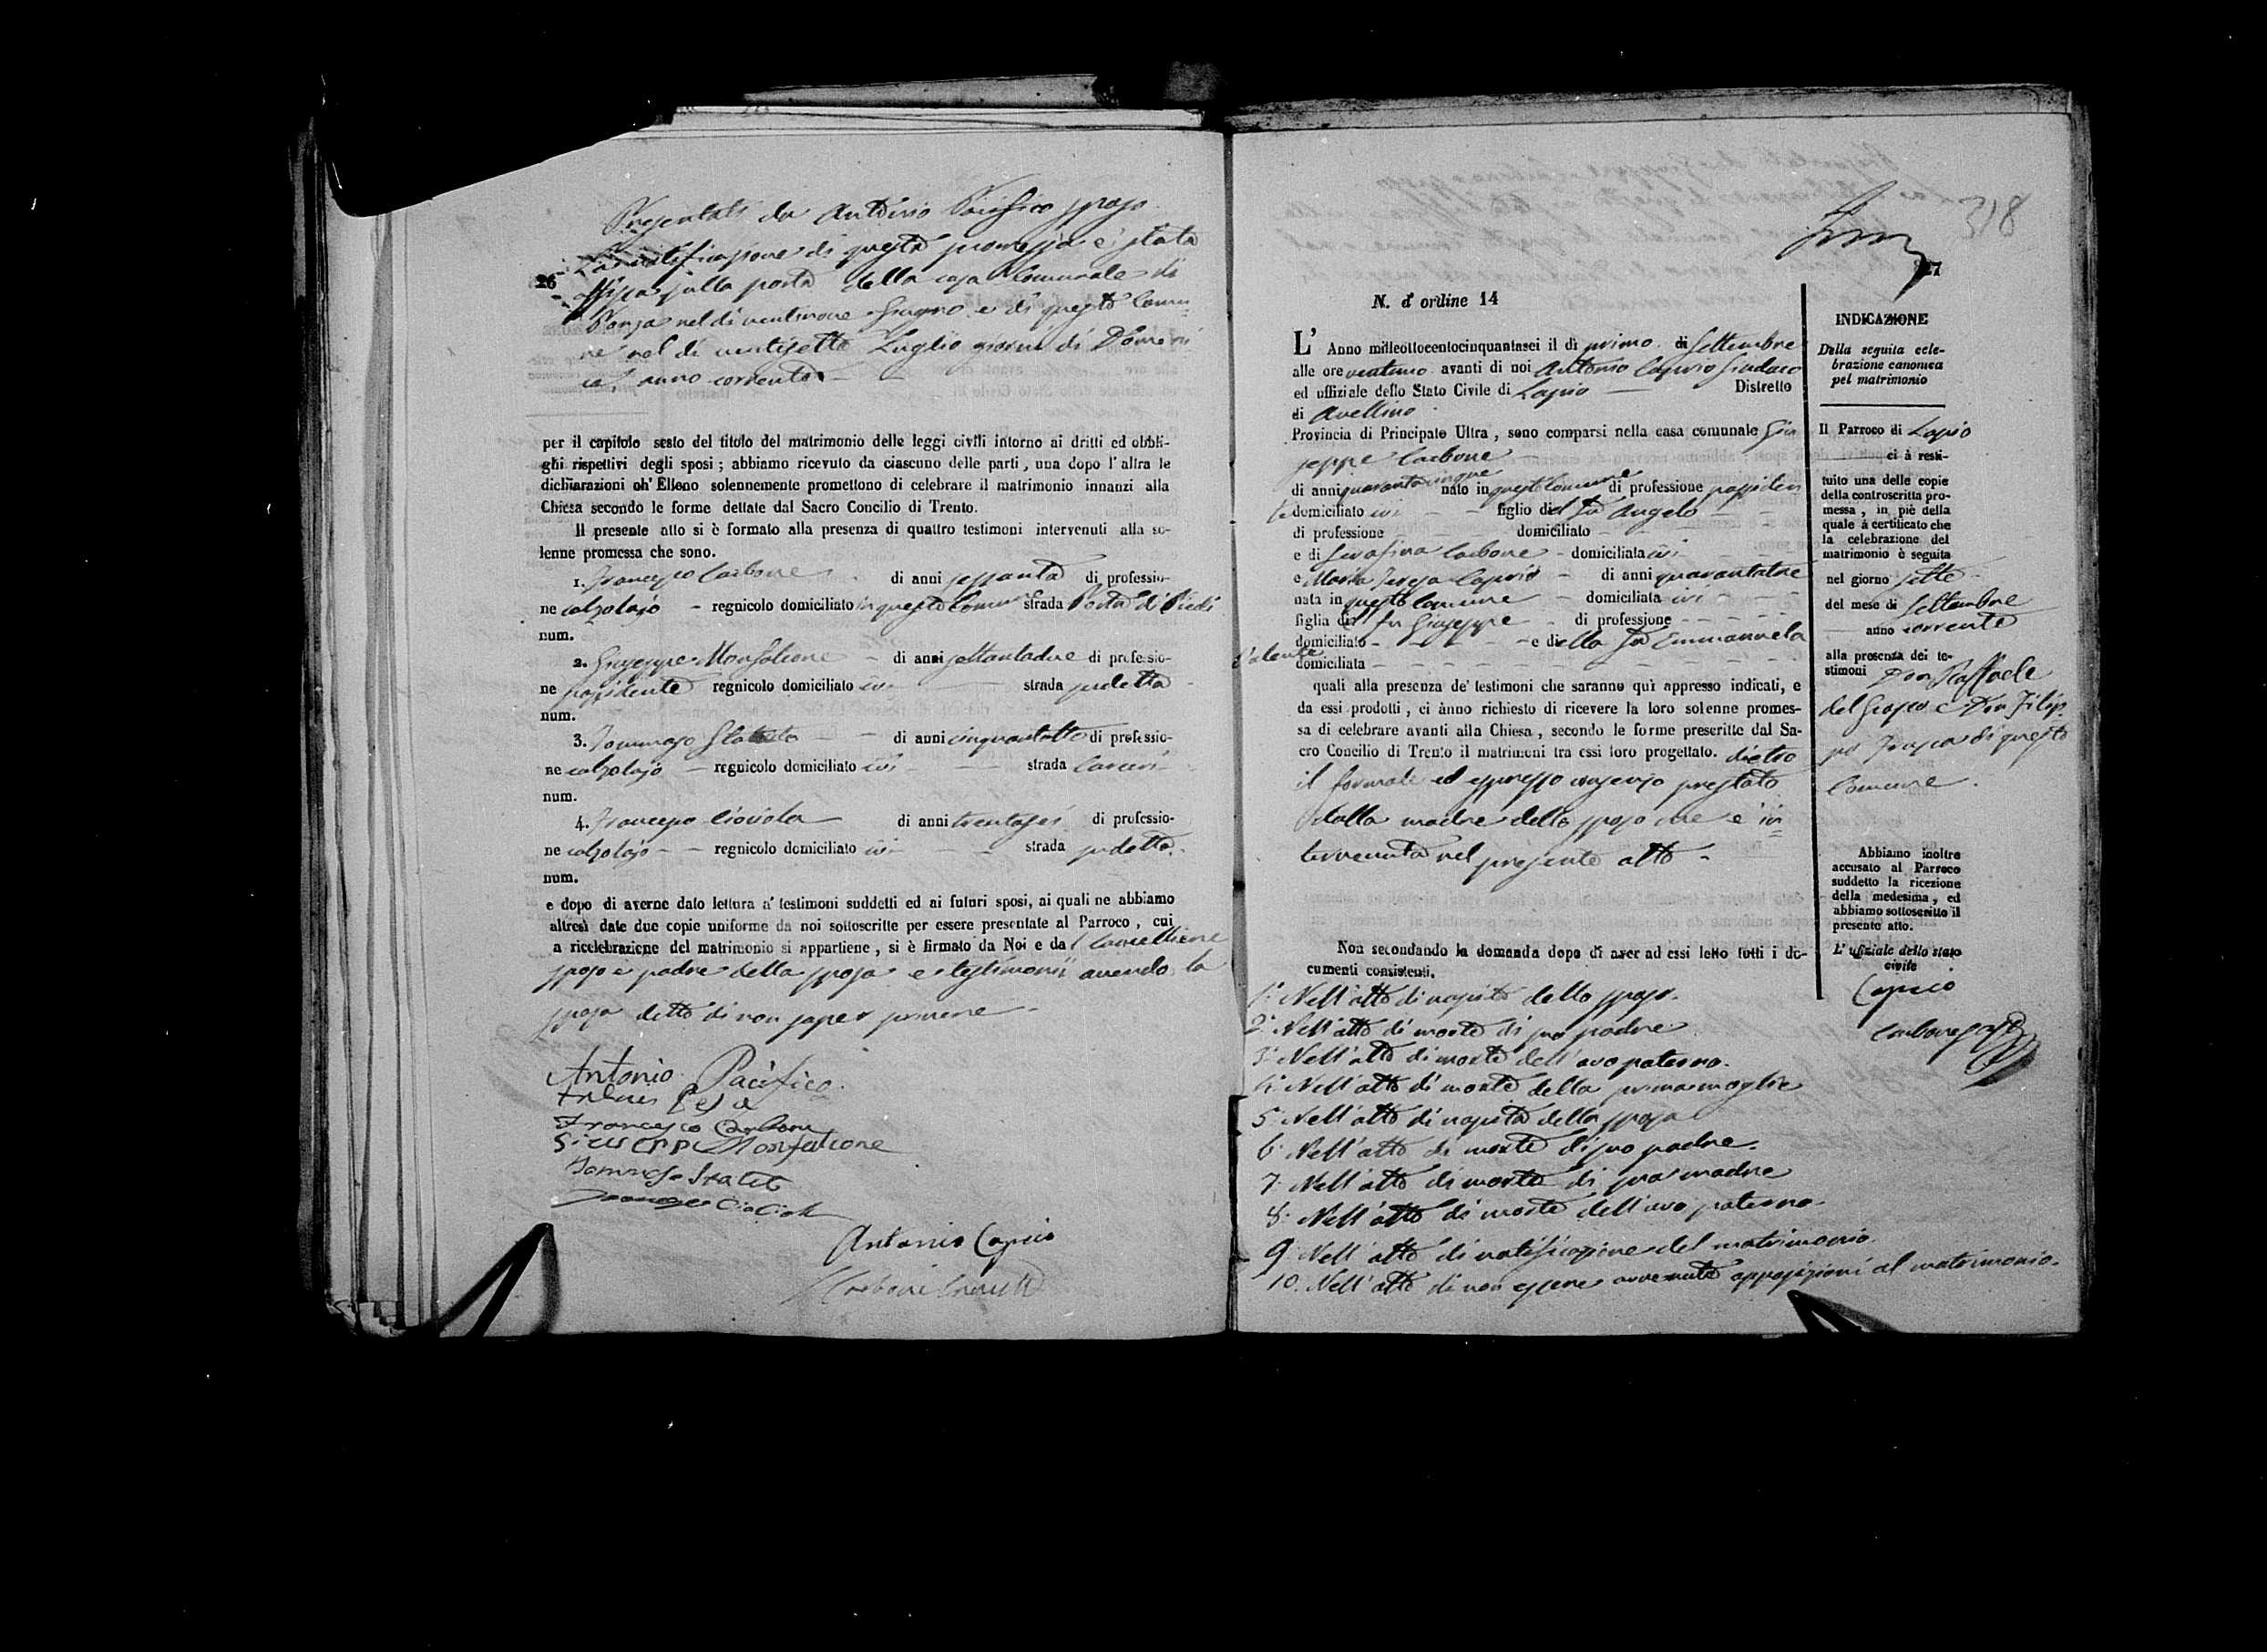 Presentati da Antonio Pacifico sposo
La notificazione di questa promessa è stata
26
affissa sulla porta della casa Comunale di
nel di ventinove Giugno e di questo Comu=
ne nel di ventisette Luglio giorni di Domeni
ca anno corrente
per il capitolo sesto del titolo del matrimonio delle leggi civili intorno ai dritti ed obbli-
ghi rispettivi degli sposi ; abbiamo ricevuto da ciascuno delle parti , una dopo l' altra le
dichiarazioni ch' Elleno solennemente promettono di celebrare il matrimonio innanzi alla
Chiesa secondo le forme dettate dal Sacro Concilio di Trento.
Il presente atto si è formato alla presenza di quattro testimoni intervenuti alla so-
lenne promessa che sono.
1. Francesco Carbone di anni sessanta di professio-
ne calzolajo - regnicolo domiciliato in questo Comune strada Porta di Piedi
num.
2. Giuseppe Monfalcone - di anni settantadue di professio-
ne possidente regnicolo domiciliato ivi - strada sudetta -
num.
3. Tommaso - - di anni cinquantotto di professio-
ne calzolajo - regnicolo domiciliato ivi - - strada Carceri -
num.
4. Francesco Ciociola di anni trentasei di professio-
ne calzolajo - - regnicolo domiciliato ivi - - strada sudetta.
num.
e dopo di averne dato lettura a' testimoni suddetti ed ai futuri sposi, ai quali ne abbiamo
altresì date due copie uniforme da noi sottoscritte per essere presentate al Parroco , cui
a ricelebrazione del matrimonio si appartiene , si è firmato da Noi e dal Cancelliere
sposo e padre della sposa e testimonii avendo la
sposa detto di non saper firmare -
Antonio Pacifico.
Francesco Carbone
Giuseppe Monfalcone
Francesco Ciociola
Antonio Capricio
Carbone
318
27
N. d' ordine 14
L' Anno milleottocentocinquantasei il dì primo di Settembre
alle ore ventuno avanti di noi Antonio Sindaco
ed uffiziale dello Stato Civile di Lapio - Distretto
di Avellino
Provincia di Principato Ultra , sono comparsi nella casa comunale Giu
seppe Carbone -
di anni quarantacinque nato in questo Comune di professione possiden
te domiciliato ivi - - figlio del fu Angelo -
di professione - domiciliato -
e di Serafina Carbone - domiciliata ivi -
e Maria Teresa Caprio - di anni quarantatre
nata in questo Comune - domiciliata ivi -
figlia del fu Giuseppe - di professione - - - -
domiciliato - - - - e della fu Emmanuela
domiciliata - - - - - - -
quali alla presenza de' testimoni che saranno quì appresso indicati, e
da essi prodotti , ci ànno richiesto di ricevere la loro solenne promes-
sa di celebrare avanti alla Chiesa , secondo le forme prescritte dal Sa-
cro Concilio di Trento il matrimoni tra essi loro progettato. dietro
il formale ed espresso consenso prestato
dalla madre dello sposo che è in
tervenuta nel presente atto -
Non secondando la domanda dopo di aver ad essi letto tutti i do-
cumenti consistenti.
1° Nell'atto di nascita dello sposo.
2° Nell'atto di morte di suo padre
3° Nell'atto di morte dell'avo paterno.
4° Nell'atto di morte della prima moglie
5° Nell'atto di nascita della sposa
6° Nell'atto di morte di suo padre.
7° Nell'atto di morte di sua madre
8° Nell'atto di morte dell'avo paterno.
9° Nell'atto di notificazione del matrimonio.
10. Nell'atto di non essere avvenute opposizioni al matrimonio.
INDICAZIONE
Della seguita cele-
brazione canonica
pel matrimonio
Il Parroco di Lapio
ci à resti-
tuito una delle copie
della controscritta pro-
messa , in piè della
quale à certificato che
la celebrazione del
matrimonio è seguita
nel giorno sette -
del mese di Settembre
anno corrente
alla presenza dei te-
stimoni Don Raffaele
del Grosso e Don Filip
po di questo
Comune .
Abbiamo inoltre
accusato al Parroco
suddetto la ricezione
della medesima , ed
abbiamo sottoscritto il
presente atto.
L' ufiziale dello stato
civile